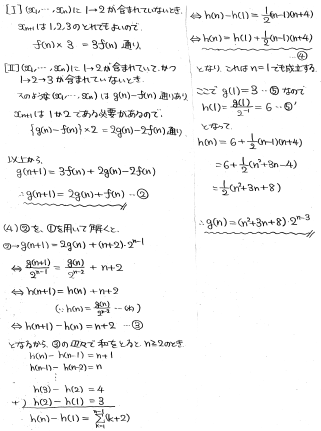 [I] (x₁, …, xₙ)に1→2が含まれていないとき.
xₙ₊₁は1,2,3のどれでもよいので.
f(n)×3 = 3f(n) 通り.
[II] (x₁, …, xₙ)に1→2が含まれていて、かつ
1→2→3が含まれていないとき.
このような(x₁, …, xₙ)は g(n)-f(n) 通りあり
xₙ₊₁は1か2である必要があるので.
{g(n)-f(n)}×2 = 2g(n)-2f(n) 通り.
以上から.
g(n+1) = 3f(n) + 2g(n)-2f(n)
∴ g(n+1) = 2g(n)+f(n) …②
(4) ②を、①を用いて解くと.
②→g(n+1) = 2g(n) + (n+2)·2ⁿ⁻¹
⇔ g(n+1)/2ⁿ⁻¹ = g(n)/2ⁿ⁻² + n+2
⇔ h(n+1) = h(n) + n+2
(∵ h(n) = g(n)/2ⁿ⁻² …(*))
⇔ h(n+1) - h(n) = n+2 …③
となるから. ③の辺々で和をとると. n≧2のとき.
h(n) - h(n-1) = n+1
h(n-1) - h(n-2) = n
⋮
h(3) - h(2) = 4
+) h(2) - h(1) = 3
h(n) - h(1) = Σₖ₌₁ⁿ⁻¹(k+2)
⇔ h(n)-h(1) = 1/2(n-1)(n+4)
⇔ h(n) = h(1) + 1/2(n-1)(n+4)
…④
となり. これは n=1でも成立する.
ここで g(1) = 3 …⑤ なので
h(1) = g(1)/2⁻¹ = 6 …⑤'
となって.
h(n) = 6 + 1/2(n-1)(n+4)
= 6 + 1/2(n²+3n-4)
= 1/2(n²+3n+8)
∴ g(n) = (n²+3n+8)·2ⁿ⁻³